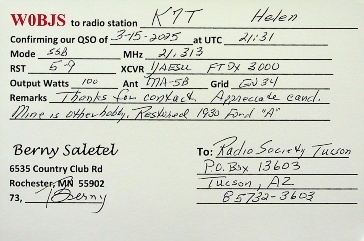 W0BJS to radio station K7T Helen
Confirming our QSO of 3-15-2025 at UTC 21:31
Mode SSB MHz 21,313
RST 5-9 XCVR YAESU FTDX 3000
Output Watts 100 Ant TA-5B Grid EN34
Remarks Thanks for contact. Appreciate card.
Mine is other hobby. Restored 1930 Ford "A"
Berny Saletel
6535 Country Club Rd
Rochester, MN 55902
73, Berny
To: Radio Society Tucson
P.O. Box 13603
Tucson, AZ
85732-3603